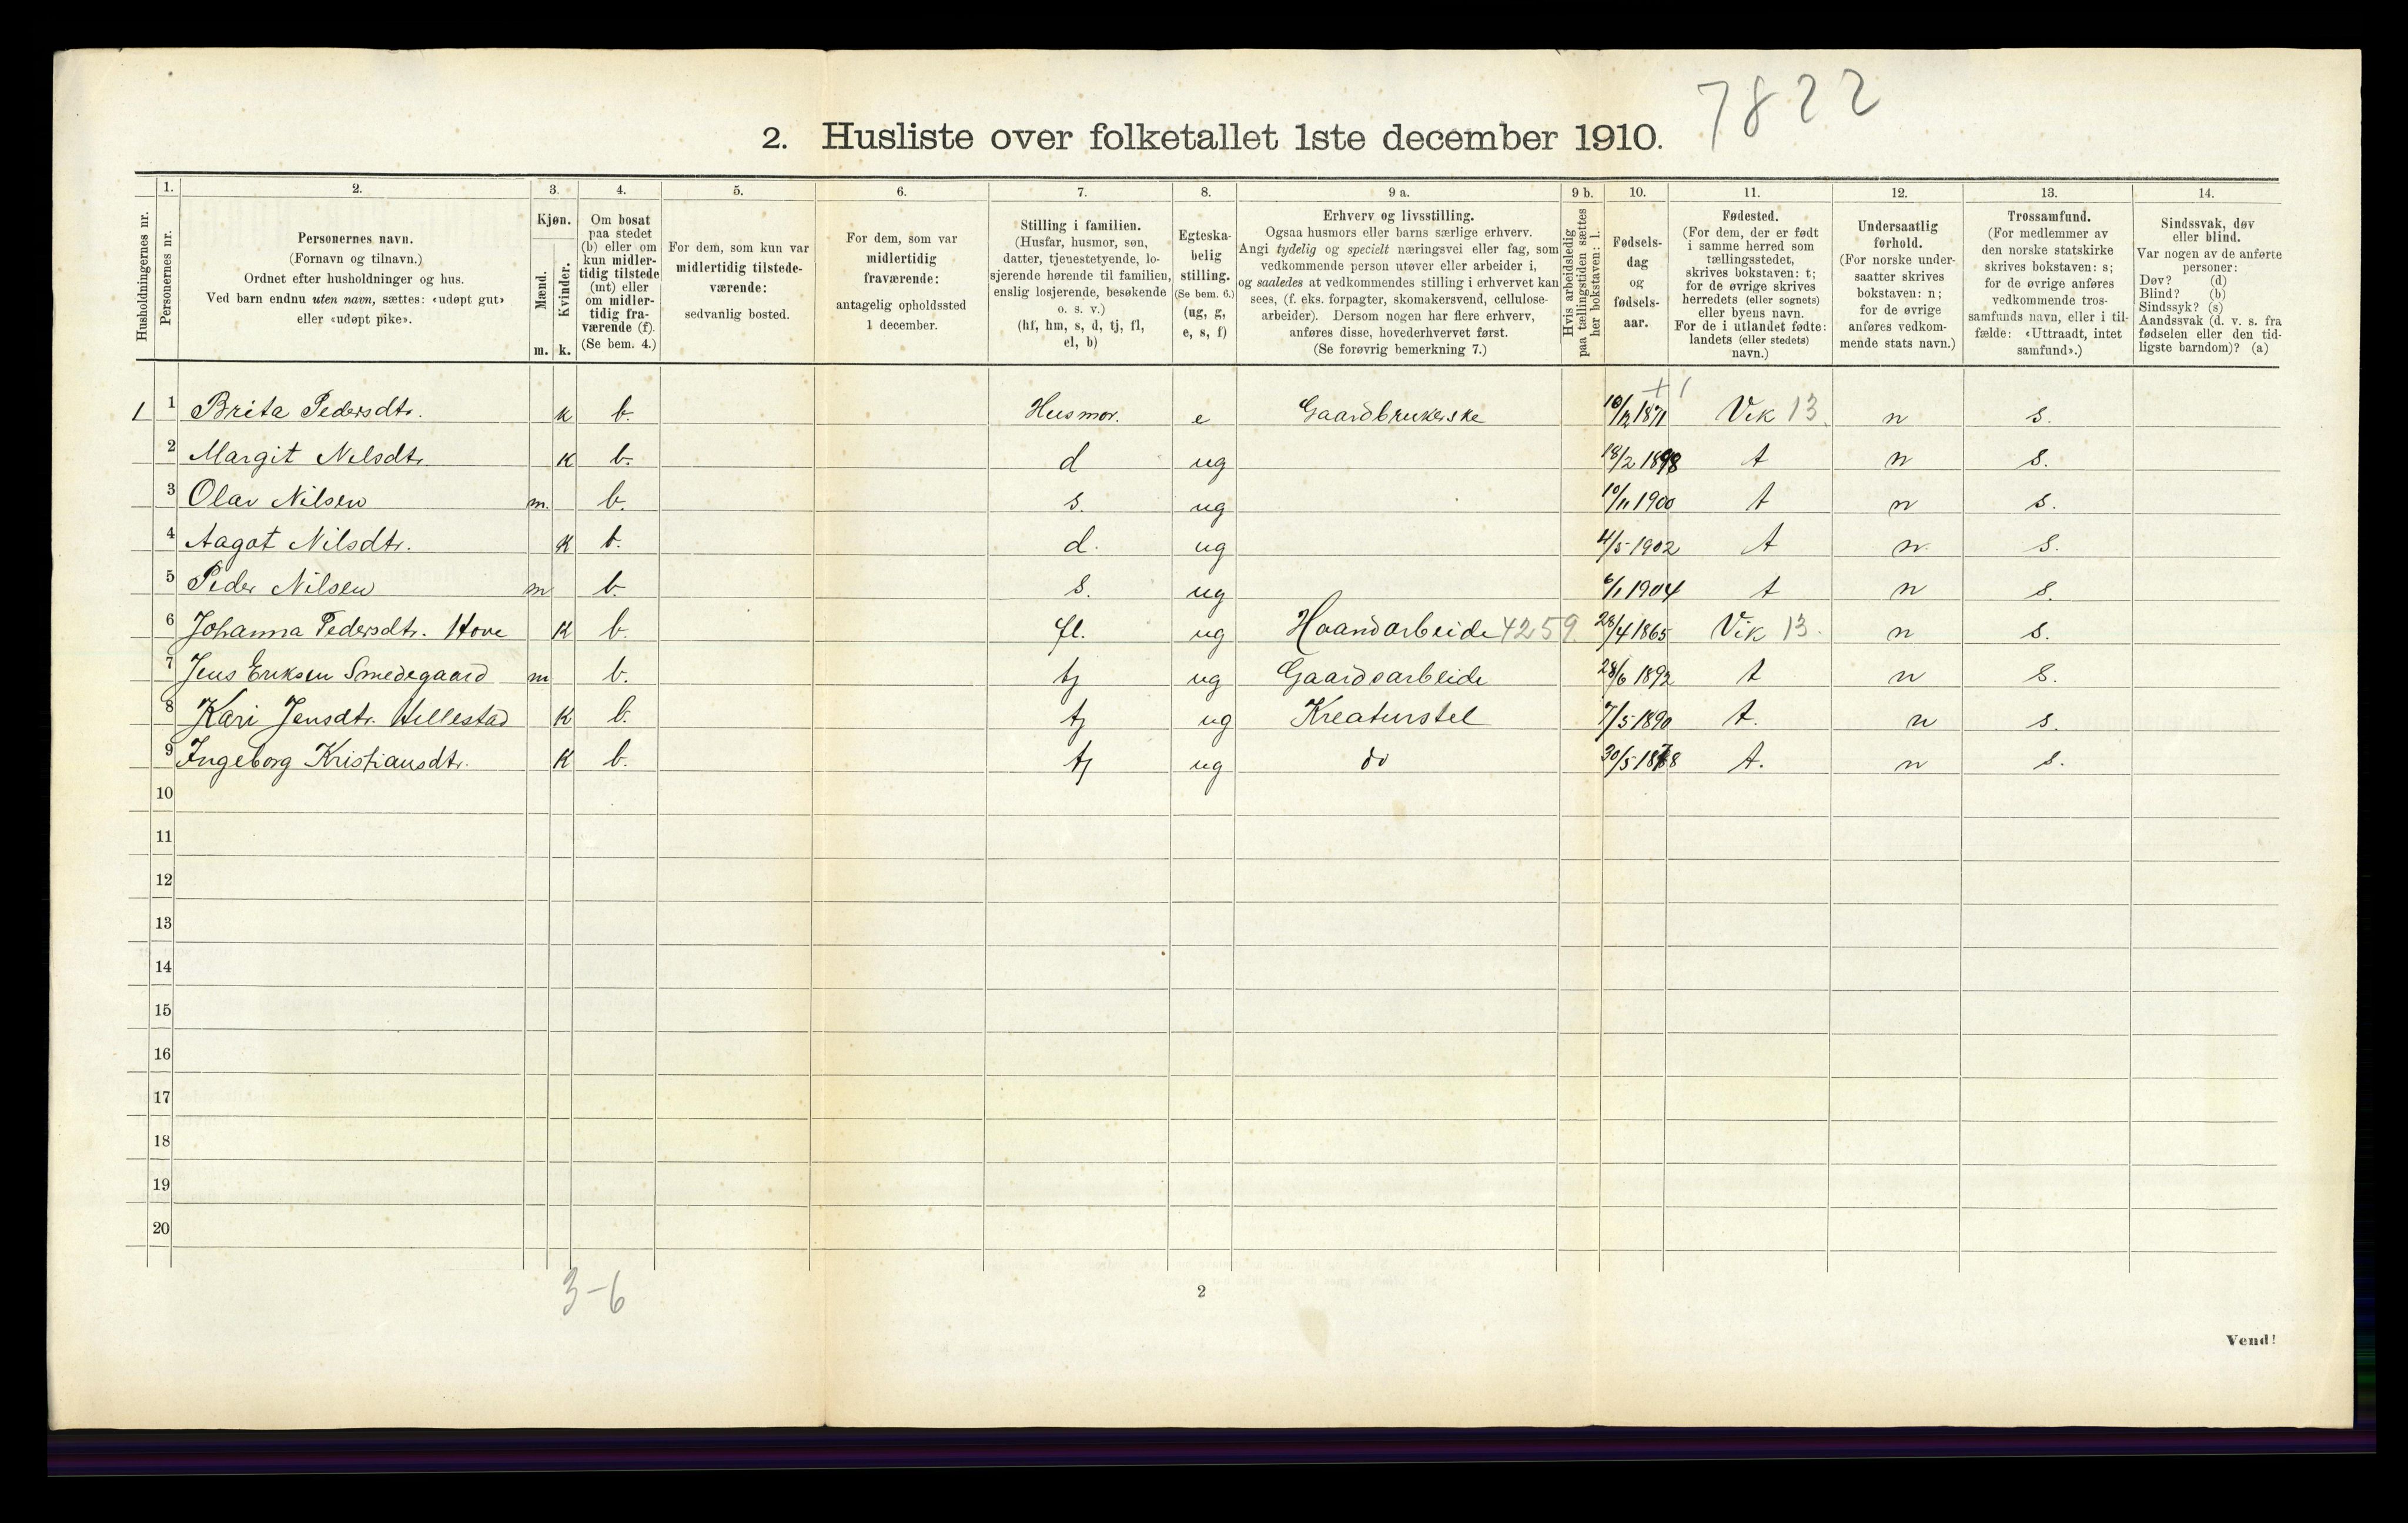 7822
2. Husliste over folketallet 1ste december 1910.
Husholdningernes nr.
1.
Personernes nr.
2.
Personernes navn.
(Fornavn og tilnavn.)
Ordnet efter husholdninger og hus.
Ved barn endnu uten navn, sættes: «udøpt gut»
eller «udøpt pike».
3.
Kjøn.
Mænd.
Kvinder.
m. k.
4.
Om bosat
paa stedet
(b) eller om
kun midler-
tidig tilstede
(mt) eller
om midler-
tidig fra-
værende (f).
(Se bem. 4.)
5.
For dem, som kun var
midlertidig tilstede-
værende:
sedvanlig bosted.
6.
For dem, som var
midlertidig
fraværende:
antagelig opholdssted
1 december.
7.
Stilling i familien.
(Husfar, husmor, søn,
datter, tjenestetyende, lo-
sjerende hørende til familien,
enslig losjerende, besøkende
o. s. v.)
(hf, hm, s, d, tj, fl,
el, b)
8.
Egteska-
belig
stilling.
(Se bem. 6.)
(ug, g,
e, s, f)
9 a.
Erhverv og livsstilling.
Ogsaa husmors eller barns særlige erhverv.
Angi tydelig og specielt næringsvei eller fag, som
vedkommende person utøver eller arbeider i,
og saaledes at vedkommendes stilling i erhvervet kan
sees, (f. eks. forpagter, skomakersvend, cellulose-
arbeider). Dersom nogen har flere erhverv,
anføres disse, hovederhvervet først.
(Se forøvrig bemerkning 7.)
9 b.
Hvis arbeidsledig
paa tællingstiden sættes
her bokstaven: l.
10.
Fødsels-
dag
og
fødsels-
aar.
11.
Fødested.
(For dem, der er født
i samme herred som
tællingsstedet,
skrives bokstaven: t;
for de øvrige skrives
herredets (eller sognets)
eller byens navn.
For de i utlandet fødte:
landets (eller stedets)
navn.)
12.
Undersaatlig
forhold.
(For norske under-
saatter skrives
bokstaven: n;
for de øvrige
anføres vedkom-
mende stats navn.)
13.
Trossamfund.
(For medlemmer av
den norske statskirke
skrives bokstaven: s;
for de øvrige anføres
vedkommende tros-
samfunds navn, eller i til-
fælde: «Uttraadt, intet
samfund».)
14.
Sindssvak, døv
eller blind.
Var nogen av de anførte
personer:
Døv? (d)
Blind? (b)
Sindssyk? (s)
Aandssvak (d. v. s. fra
fødselen eller den tid-
ligste barndom)? (a)
1 1 Brita Pedersdtr. k b. Husmor. e Gaardbrukerske 1871 Vik 13 n s.
2 Margit Nilsdtr. k b. d ug 18/2 1898 t n s.
3 Olav Nilsen m. b. s. ug 10/11 1900 t n s.
4 Aagot Nilsdtr. k b. d. ug 4/5 1902 t n s.
5 Peder Nilsen m b. s. ug 6/1 1904 t n s.
6 Johanna Pedersdtr. Hove k b. fl. ug Haandarbeide 4259 28/4 1865 Vik 13. n s.
7 Jens Eriksen Smedegaard m b. tj ug Gaardsarbeide 28/6 1892 t n s.
8 Kari Jensdtr. Hellestad k b. tj ug Kreaturstel 7/5 1890 t. n s.
9 Ingeborg Kristiansdtr. k b. tj ug do 30/5 t. n s.
10
11
12
13
14
15
16
17
18
19
20
3-6
2
Vend!